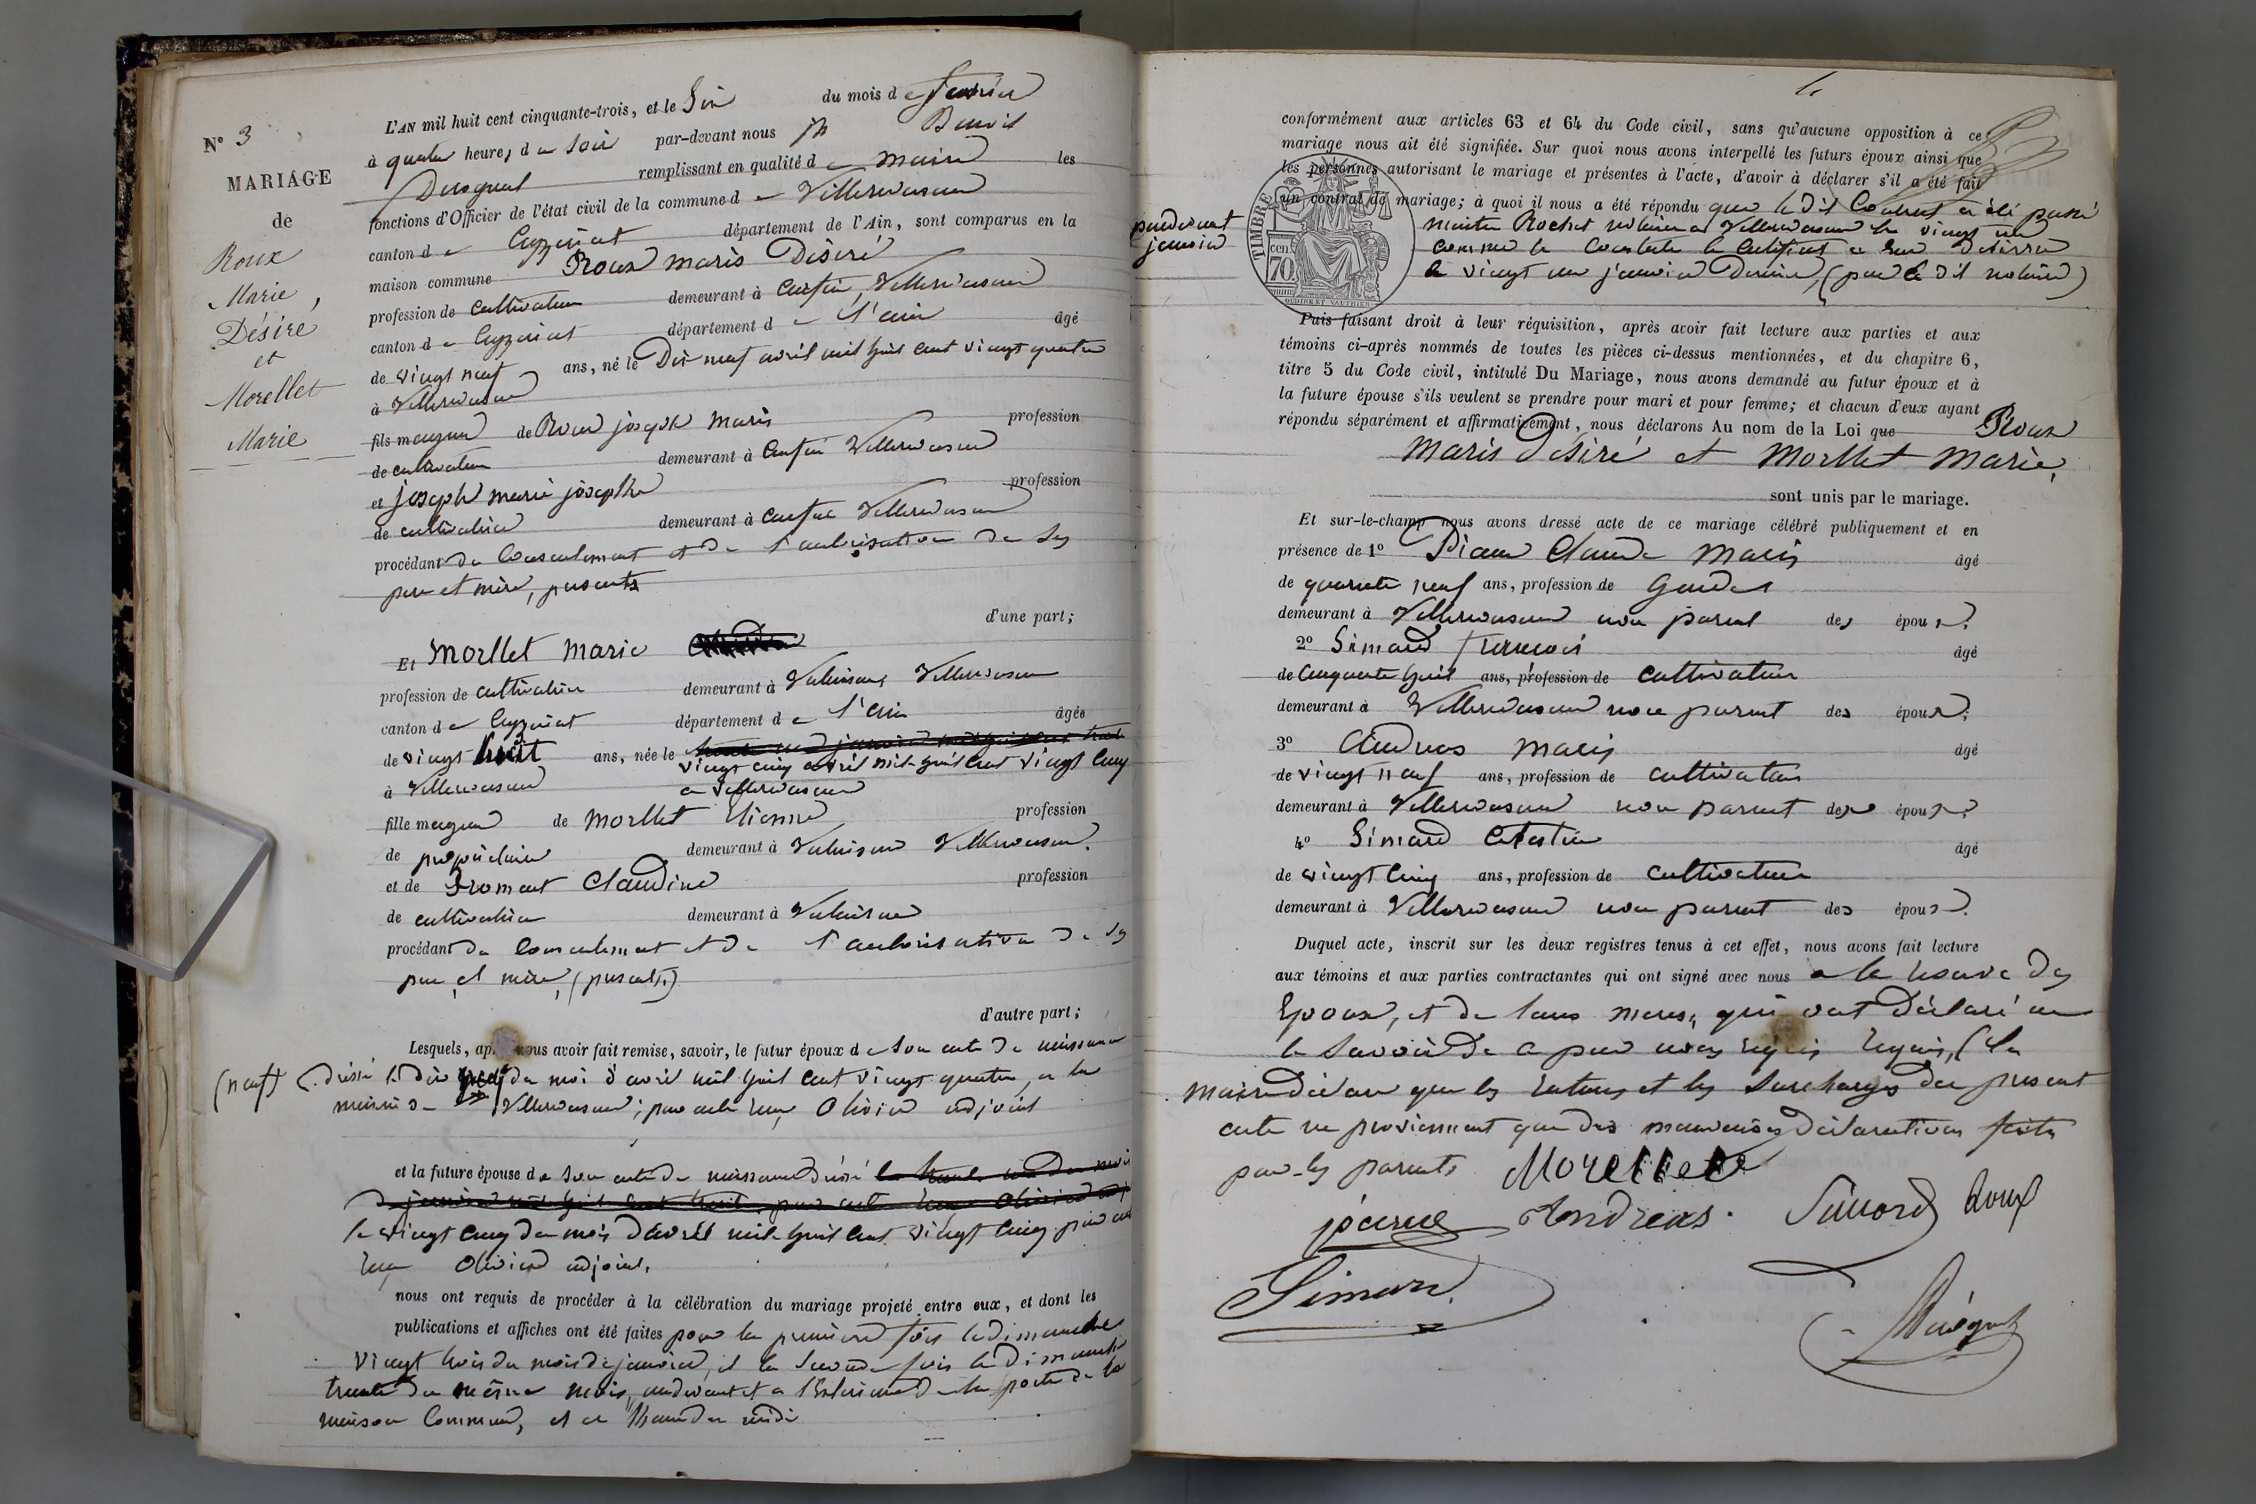 N° 3
MARIAGE
de
Roux
Marie,
Désiré
et
Morellet
Marie
L'AN mil huit cent cinquante-trois, et le Six du mois de février
à quatre heures du soir par-devant nous jh Benoit
remplissant en qualité de maire les
fonctions d'Officier de l'état civil de la commune de Villereversure
canton de Ceyzeriat département de l'Ain, sont comparus en la
maison commune Roux marie Désiré
profession de cultivateur demeurant à Villereversure
canton de Ceyzeriat département de l'ain âgé
de vingt neuf ans, né le Dix neuf avril mil huit cent vingt quatre
à Villereversure
fils majeur de Roux joseph marie profession
de cultivateur demeurant à Villereversure
et joseph marie josephte profession
de cultivatrice demeurant à Villereversure
procédant du Consentement et de l'autorisation de ses
pere et mère, présents
d'une part;
Et Morellet Marie
profession de cultivatrice demeurant à Villereversure
canton de Ceyzeriat département de l'ain âgée
de vingt huit ans, née le
vingt cinq avril mil huit cent vingt cinq
à Villereversure a Villereversure
fille majeure de Morellet Etienne profession
de propriétaire demeurant à Villereversure.
et de Froment Claudine profession
de cultivatrice demeurant à
procédant du Consentement et de l'autorisation de ses
pere et mère, (présents)
d'autre part;
Lesquels, après nous avoir fait remise, savoir, le futur époux de son acte de naissance
(neuf) dressé le dix du moi d'avril mil huit cent vingt quatre, a la
mairie de Villereversure; par acte reçu Olivier adjoint
et la future épouse de son acte de naissance dressé
le vingt cinq du mois d'avril mil huit cent vingt cinq par acte
reçu Olivier adjoint.
nous ont requis de procéder à la célébration du mariage projeté entre eux, et dont les
publications et affiches ont été faites pour la première fois le dimanche
vingt trois du mois de janvier, et la seconde fois le dimanche
trente du même mois, audevant et a l'Exterieur de la porte de la
maison Commune, et a l'heure de midi
conformément aux articles 63 et 64 du Code civil, sans qu'aucune opposition à ce
mariage nous ait été signifiée. Sur quoi nous avons interpellé les futurs époux ainsi que
les personnes autorisant le mariage et présentes à l'acte, d'avoir à déclarer s'il a été fait
un contrat de mariage; à quoi il nous a été répondu que le dit Contrat a été passé
pardevant maitre Rochet notaire a Villereversure le vingt un
janvier comme le Constate le Certificat a eux délivré
le vingt un janvier Dernier, (par le dit notaire)
TIMBRE
cen
70
OUDINE ET VAUTHIER
Puis faisant droit à leur réquisition, après avoir fait lecture aux parties et aux
témoins ci-après nommés de toutes les pièces ci-dessus mentionnées, et du chapitre 6,
titre 5 du Code civil, intitulé Du Mariage, nous avons demandé au futur époux et à
la future épouse s'ils veulent se prendre pour mari et pour femme; et chacun d'eux ayant
répondu séparément et affirmativement, nous déclarons Au nom de la Loi que Roux
Marie Désiré et Morllet Marie,
sont unis par le mariage.
Et sur-le-champ nous avons dressé acte de ce mariage célébré publiquement et en
présence de 1° Claude Marie âgé
de quarante neuf ans, profession de Garde
demeurant à Villereversure non parent des époux.
2° Simard François âgé
de Cinquante huit ans, profession de Cultivateur
demeurant à Villereversure non parent des époux.
3° Andreas Marie âgé
de vingt neuf ans, profession de cultivateur
demeurant à Villereversure non parent des époux.
4° Simard Celestin âgé
de vingt Cinq ans, profession de cultivateur
demeurant à Villereversure non parent des époux.
Duquel acte, inscrit sur les deux registres tenus à cet effet, nous avons fait lecture
aux témoins et aux parties contractantes qui ont signé avec nous a la reserve des
Epoux, et de leurs meres, qui ont Déclaré ne
le Savoir de a requis, (Le
maire déclare que les ratures et les Surcharges du present
acte ne proviennent que des mauvaises déclarations faites
par les parents Morellet
Andreas. Simard Roux
Simard